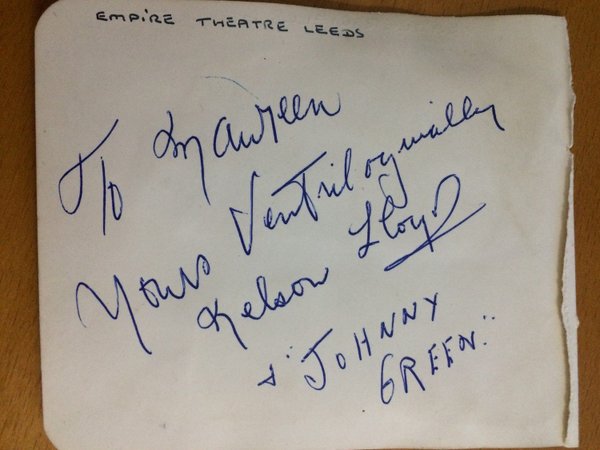 EMPIRE THEATRE LEEDS
To Maureen
Yours Ventriloquially
Kelson Lloyd
& "JOHNNY
GREEN."